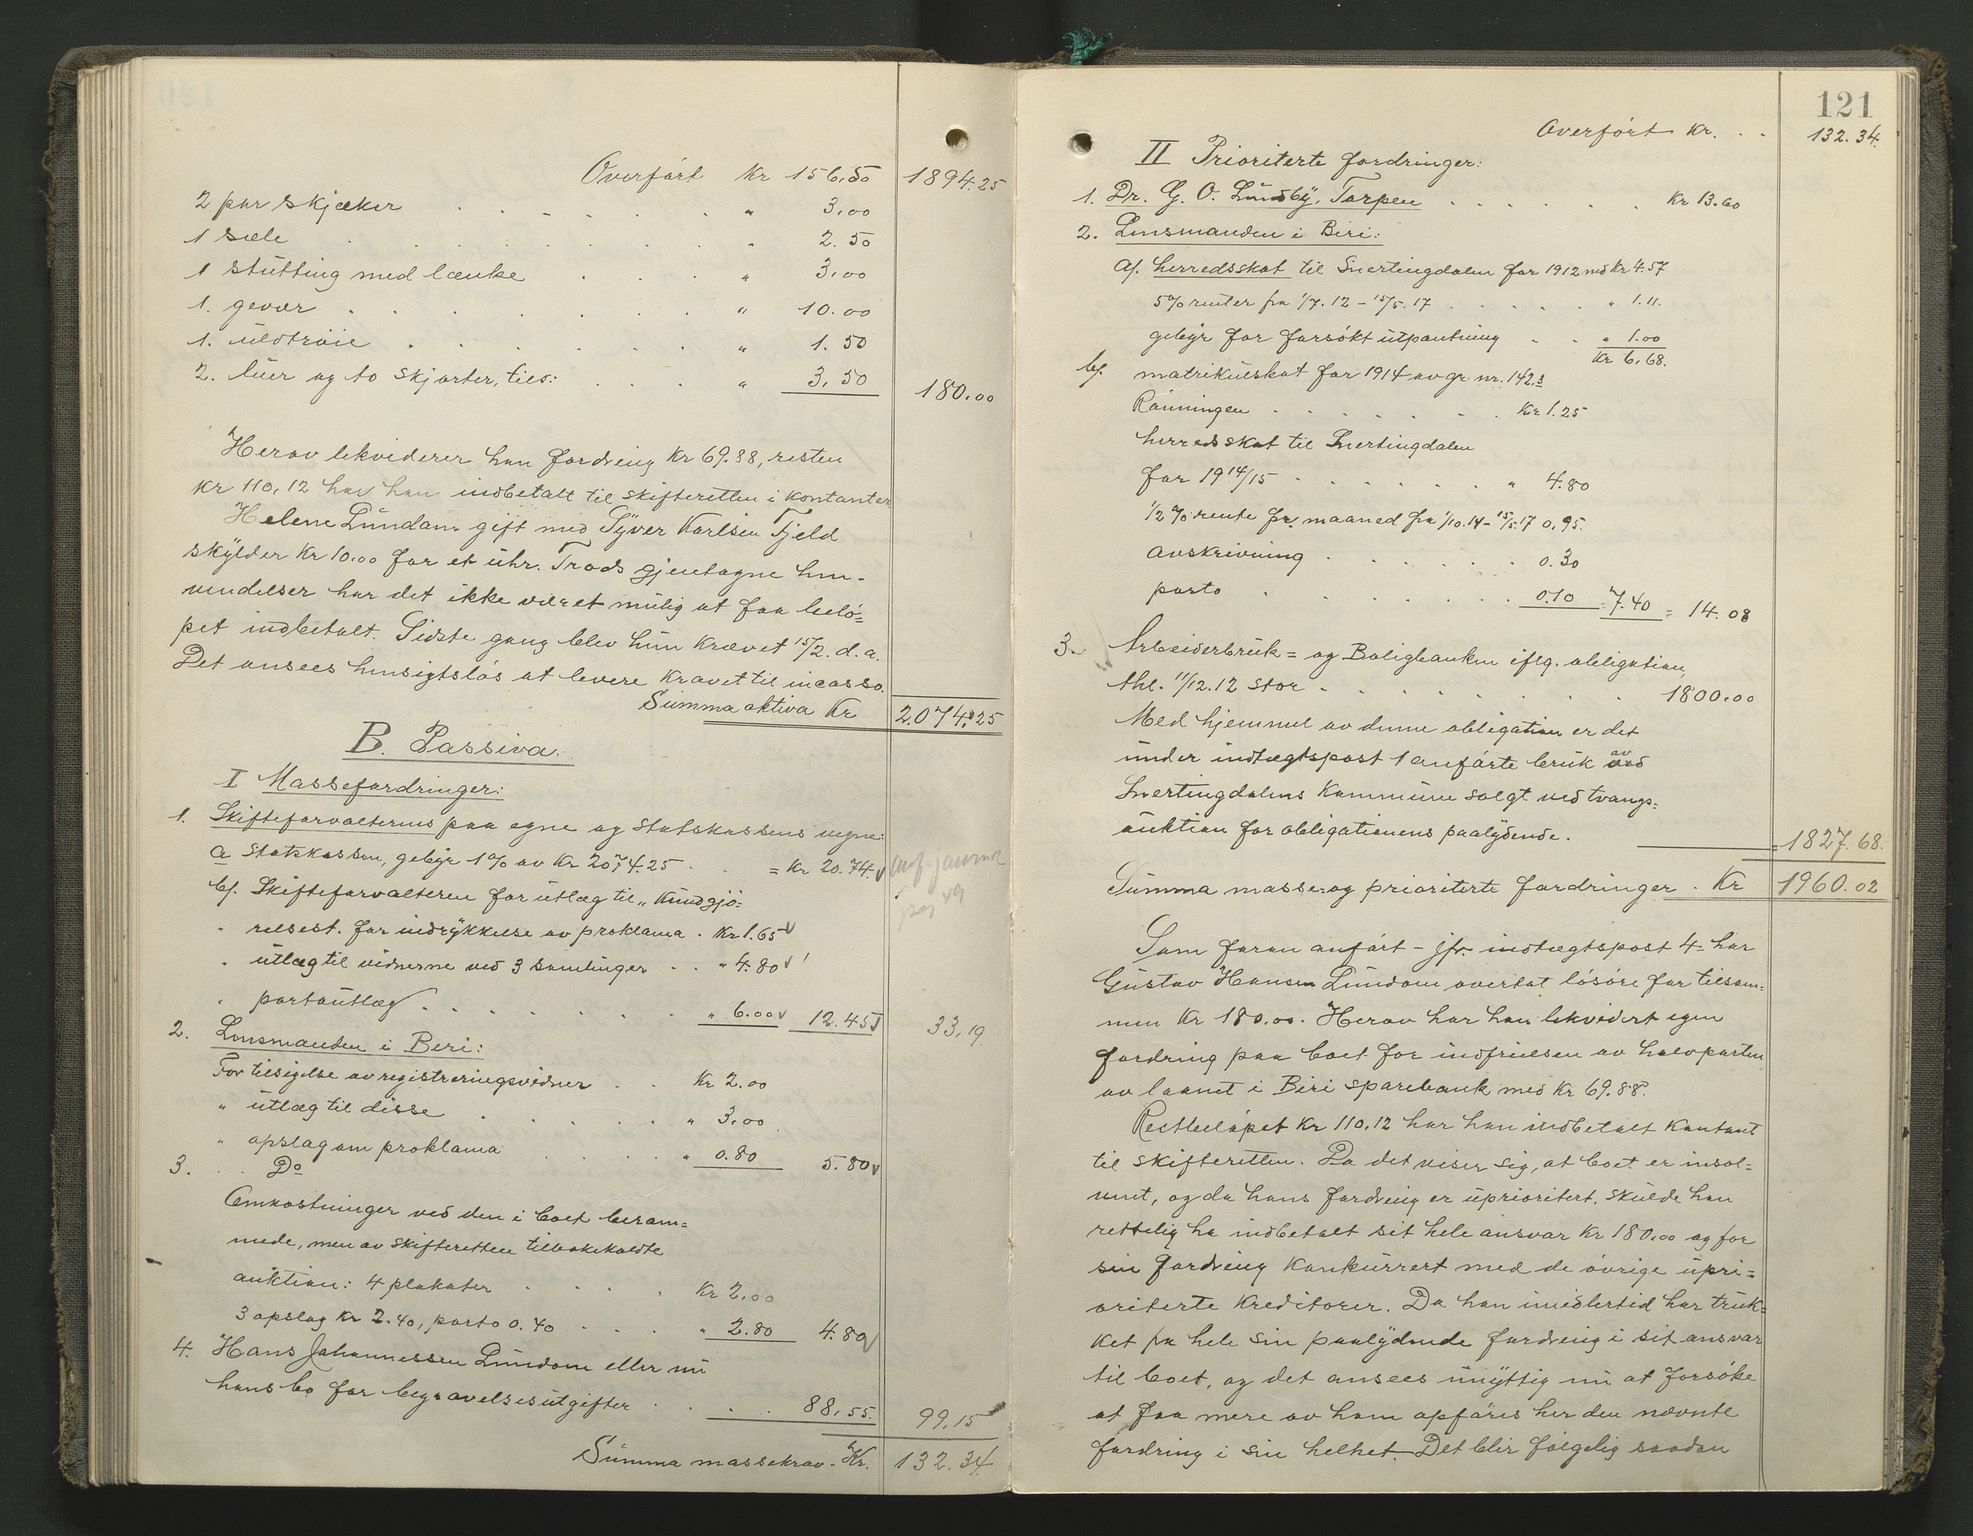 Overført Kr 156.50 1894.25
2 par skjæker " 3.00
1 sæle " 2.50
1 stutting med lænke " 3.00
1. gevær " 10.00
1. uldtrøie " 1.50
2. luer og to skjorter, tils: " 3.50 180.00
Herav likviderer han fordring Kr 69.88, resten
Kr 110,12 har han indbetalt til skifteretten i kontanter
Helene Lundom gift med Syver Karlsen Fjeld
skylder Kr 10.00 for et uhr. Trods gjentagne hen-
vendelser har det ikke været mulig at faa belø-
pet indbetalt. Sidste gang blev hun krævet 15/2. d.a.
Det ansees hensigtsløs at levere kravet til incasso.
Summa aktiva Kr 2.074.25
B. Passiva.
I Massefordringer:
1. Skifteforvalterens paa egne og Statskassens vegne:
a Statskassen, gebyr 1% av Kr 2074.25 = Kr 20.74
anf. journal
pag 49
b/. Skifteforvalteren for utlæg til "Kundgjø-
" relsest. for indrykkelse av proklama . Kr 1.65
" utlæg til vidnerne ved 3 samlinger . . " 4.80
" portoutlæg " 6.00 12.45 33.19
2. Lensmanden i Biri:
For tilsigelse av registreringsvidner . . Kr 2.00
" utlæg til disse " 3.00
" opslag om proklama " 0.80 5.80
3. . . Do
Omkostninger ved den i boet beram-
mede, men av skifteretten tilbakekaldte
auktion: 4 plakater Kr 2.00
3 opslag Kr 2.40, porto 0.40 " 2.80 4.80
4. Hans Johannessen Lundom eller nu
hans bo for begravelsesutgifter 88.55 99.15
Summa massekrav. Kr. 132.34
121
Overført Kr. . . 132.34
II Prioriterte fordringer:
1. Dr. G. O. Lundby, Torpen Kr 13.60
2. Lensmanden i Biri:
a/. herredsskat til Snertingdalen for 1912 med Kr 4.57
5% renter fra 1/7.12 - 15/5.17 " 1.11.
gebyr for forsøkt utpantning " 1.00
Kr 6.68.
b/. matrikulskat for 1914 av gr. nr. 142.3
Rønningen Kr 1.25
herredsskat til Snertingdalen
for 1914/15 " 4.80
1/2% rente pr. maaned fra 1/10.14 - 15/5.17 0.95
avskrivning 0.30
porto 0.10 7.40 = 14.08
3. Arbeiderbruk= og Boligbanken iflg. obligation,
thl. 11/12.12 stor 1800.00
Med hjemmel av denne obligation er det
under indtægtspost 1 anførte bruk av
Snertingdalens Kommune solgt ved tvangs-
auktion for obligationens paalydende. 1827.68.
Summa masse= og prioriterte fordringer . Kr 1960.02
Som foran anført - jfr. indtægtspost 4 - har
Gustav Hansen Lundom overtat løsøre for tilsam-
men Kr 180.00. Herav har han likvidert egen
fordring paa boet for indfrielsen av halvparten
av laanet i Biri sparebank med Kr 69.88.
Restbeløpet Kr 110,12 har han indbetalt kontant
til skifteretten. Da det viser sig, at boet er insol-
vent, og da hans fordring er uprioritert, skulde han
rettelig ha indbetalt sit hele ansvar Kr 180.00 og for
sin fordring konkurrert med de øvrige upri-
oriterte kreditorer. Da han imidlertid har truk-
ket fra hele sin paalydende fordring i sit ansvar
til boet, og det ansees unyttig nu at forsøke
at faa mere av ham opføres her den nævnte
fordring i sin helhet. Det blir følgelig saadan